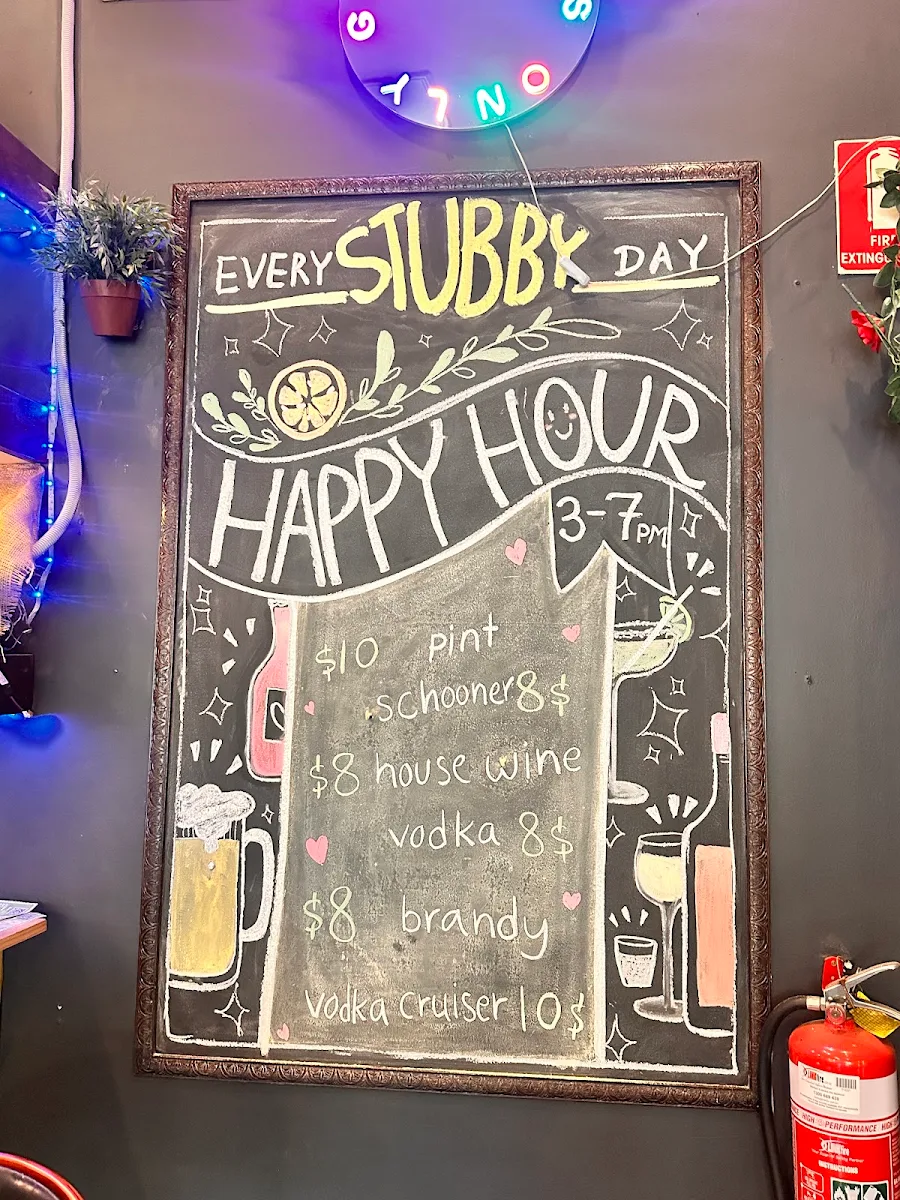 G Y L N O S
EVERY STUBBY DAY
HAPPY HOUR
3-7PM
$10 pint
schooner 8$
$8 house wine
vodka 8$
$8 brandy
vodka cruiser 10$
FIRE
HIGH PERFORMANCE HIGH
INSTRUCTIONS